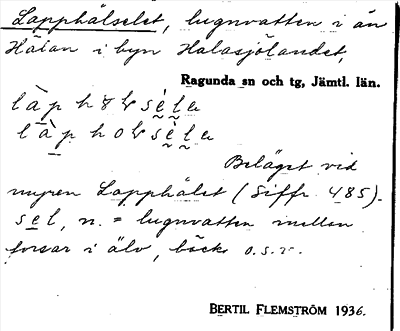 Lapphålselet, lugnvatten i ån
Håsan i byn Halasjölandet,
Ragunda sn och tg, Jämtl. län.
Beläget vid
myren Lapphålet (Siffr 485).
sel, n. = lugnvatten mellan
forsar i älv, bäck o.s.v.
BERTIL FLEMSTRÖM 1936.